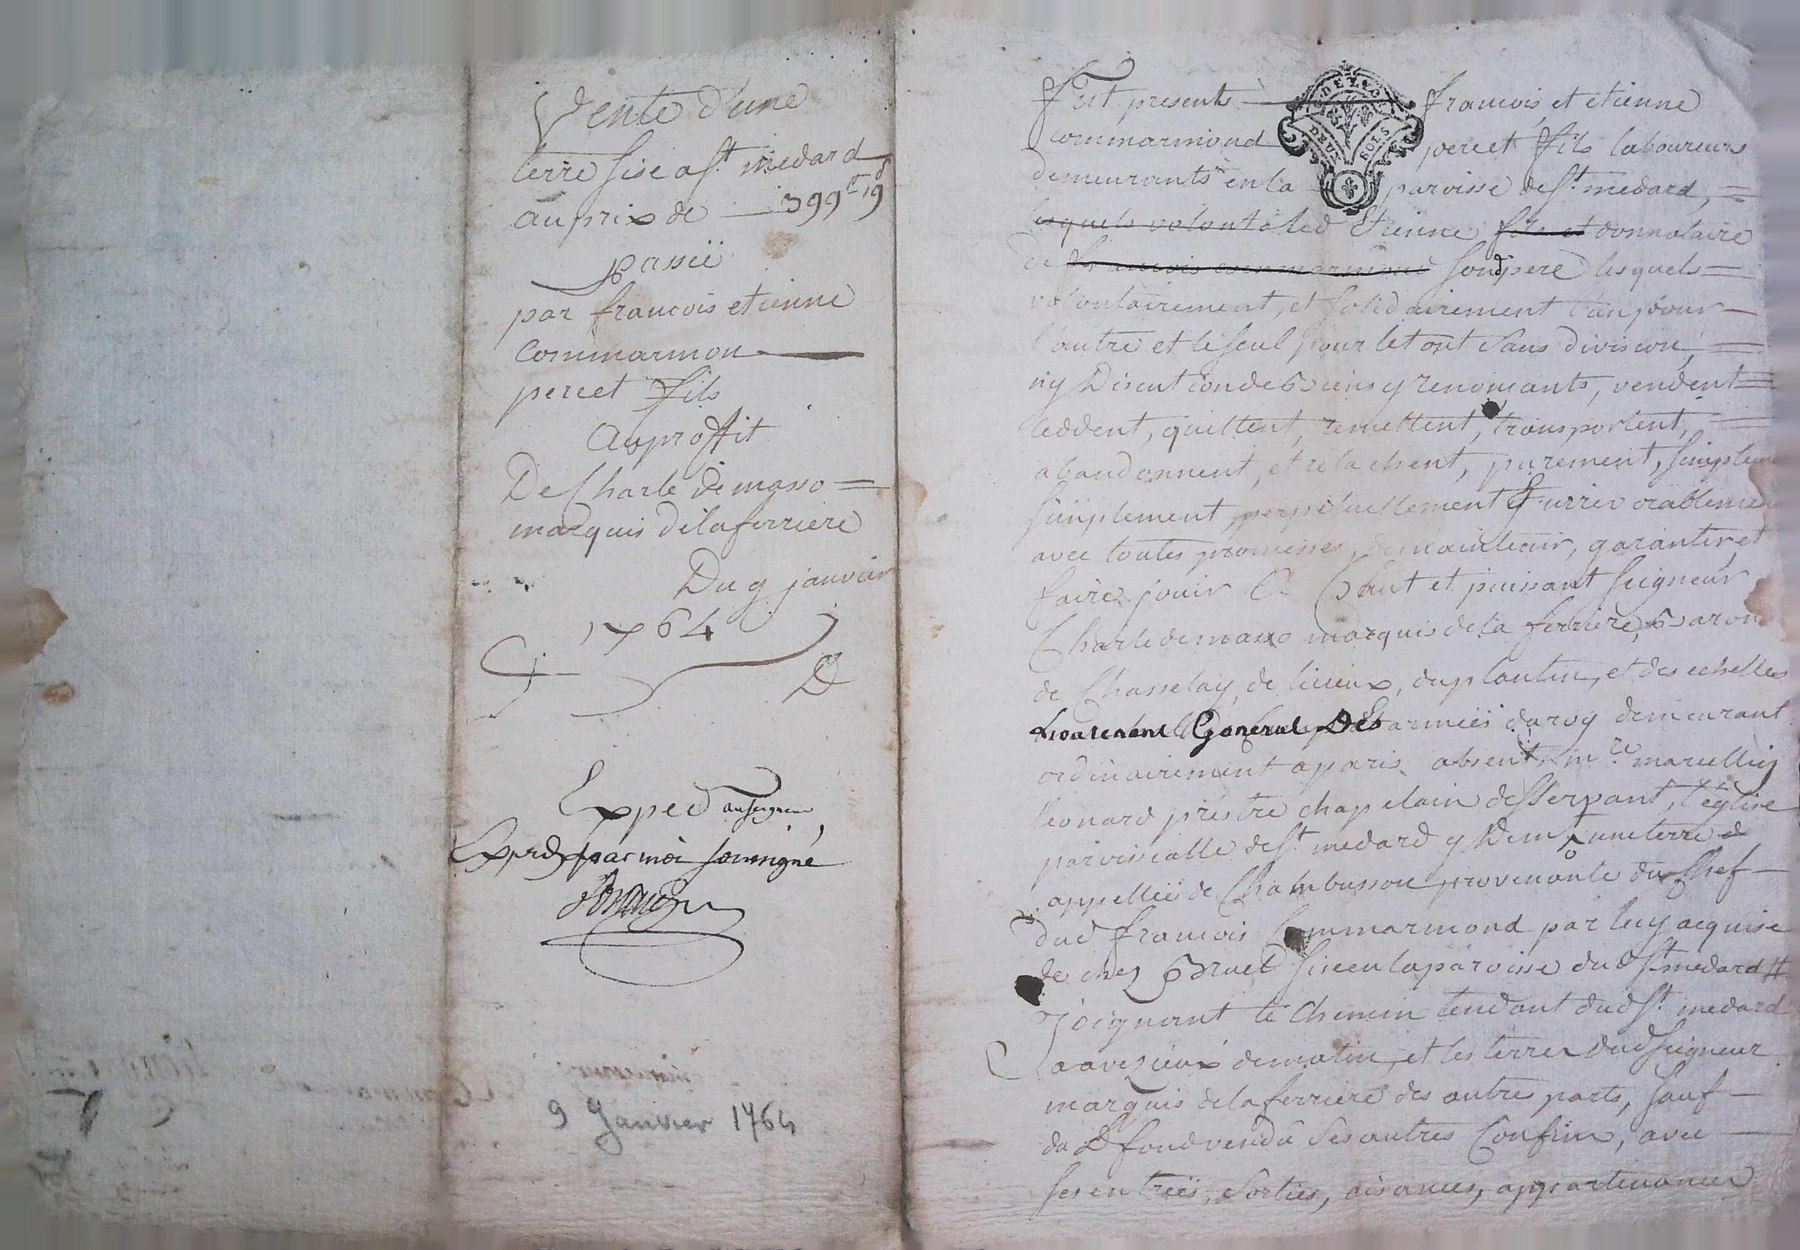 Vente d'une
terre sise a st. medard
au prix de 399 lt 19 s
passeë
par francois etienne
commarmon
pere et fils
au proffit
De Charle de masso
marquis de laferriere
Du 9 janvier
1764
Exped au seigneur
Exped par moi soussigné
9 Janvier 1764
fut presents francois, et etienne
commarmond pere et fils laboureurs
demeurants en la paroisse de st. medard,
lesquels volont led Etienne fils et donnataire
de francois commarmond sond pere lesquels
volontairement, et solidairement l'un pour
l'autre et le seul pour le tout sans division,
ny Discution de biens y renonçants, vendent
ceddent, quittent, remettent, transportent,
abandonnent, et relachent, purement, simplem
simplement, perpetuellement & irrevocablement
avec toutes promesses de maintenir, garantir, et
faire jouir A haut et puissant seigneur
Charle de masso marquis de la ferriere, baron
de Chasselay, de lissieux, du plantin, et des echelles
Lieutenent General Des armeës du roy demeurant
ordinairement a paris absent, mre. marcellin
leonard prestre chapelain desservant, l'église
parroissialle de st. medard y Dem une terre
appelleë de Chambusson provenante du Chef
dud francois Commarmond par luy acquise
de chez Bruel sise en la paroisse dud st. medard
Joignant le Chemin tendant dud st. medard
a avesieux de matin, et les terres dud seigneur
marquis de la ferriere des autres parts, sauf
dud fond vendu ses autres Confins, avec
ses entreës, sorties, aisances, appartenances
DE LYON
DEUX SOLS